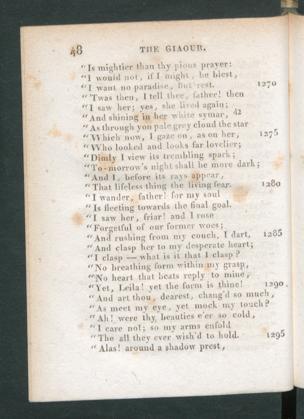 48 THE GIAOUR.
"Is mightier than thy pious prayer:
"I would not, if I might, be blest,
"I want no paradise, but rest. 1270
"'Twas then, I tell thee, father! then
"I saw her; yes, she lived again;
"And shining in her white symar, 42
"As through yon pale grey cloud the star
"Which now, I gaze on, as on her, 1275
"Who looked and looks far lovelier;
"Dimly I view its trembling spark;
"To-morrow's night shall be more dark;
"And I, before its rays appear,
"That lifeless thing the living fear. 1280
"I wander, father! for my soul
"Is fleeting towards the final goal.
"I saw her, friar! and I rose
"Forgetful of our former woes;
"And rushing from my couch, I dart, 1285
"And clasp her to my desperate heart;
"I clasp — what is it that I clasp?
"No breathing form within my grasp,
"No heart that beats reply to mine,
"Yet, Leila! yet the form is thine! 1290
"And art thou, dearest, chang'd so much,
"As meet my eye, yet mock my touch?
"Ah! were thy beauties e'er so cold,
"I care not; so my arms enfold
"The all they ever wish'd to hold. 1295
"Alas! around a shadow prest,